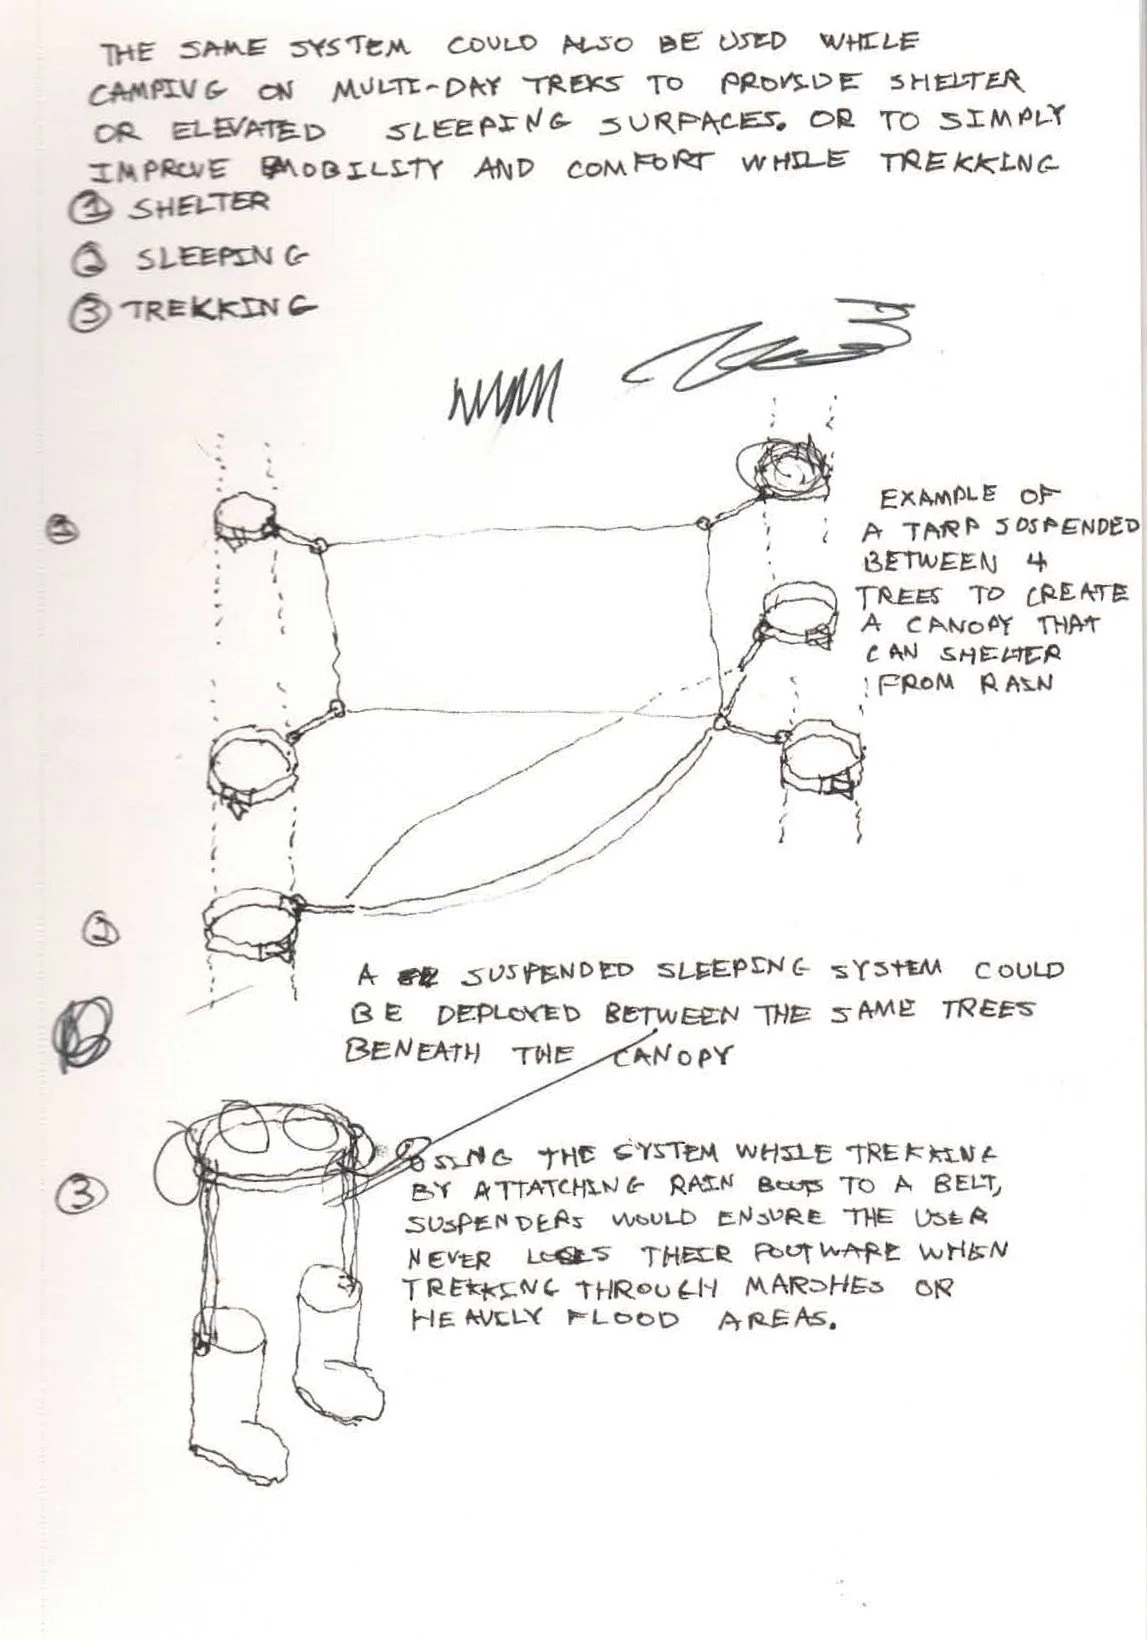 THE SAME SYSTEM COULD ALSO BE USED WHILE
CAMPING ON MULTI-DAY TREKS TO PROVIDE SHELTER
OR ELEVATED SLEEPING SURFACES. OR TO SIMPLY
IMPROVE MOBILITY AND COMFORT WHILE TREKKING
① SHELTER
② SLEEPING
③ TREKKING
①
EXAMPLE OF
A TARP SUSPENDED
BETWEEN 4
TREES TO CREATE
A CANOPY THAT
CAN SHELTER
FROM RAIN
②
A SUSPENDED SLEEPING SYSTEM COULD
BE DEPLOYED BETWEEN THE SAME TREES
BENEATH THE CANOPY
③
USING THE SYSTEM WHILE TREKKING
BY ATTATCHING RAIN BOOTS TO A BELT,
SUSPENDERS WOULD ENSURE THE USER
NEVER LOSES THEIR FOOTWARE WHEN
TREKKING THROUGH MARSHES OR
HEAVILY FLOOD AREAS.